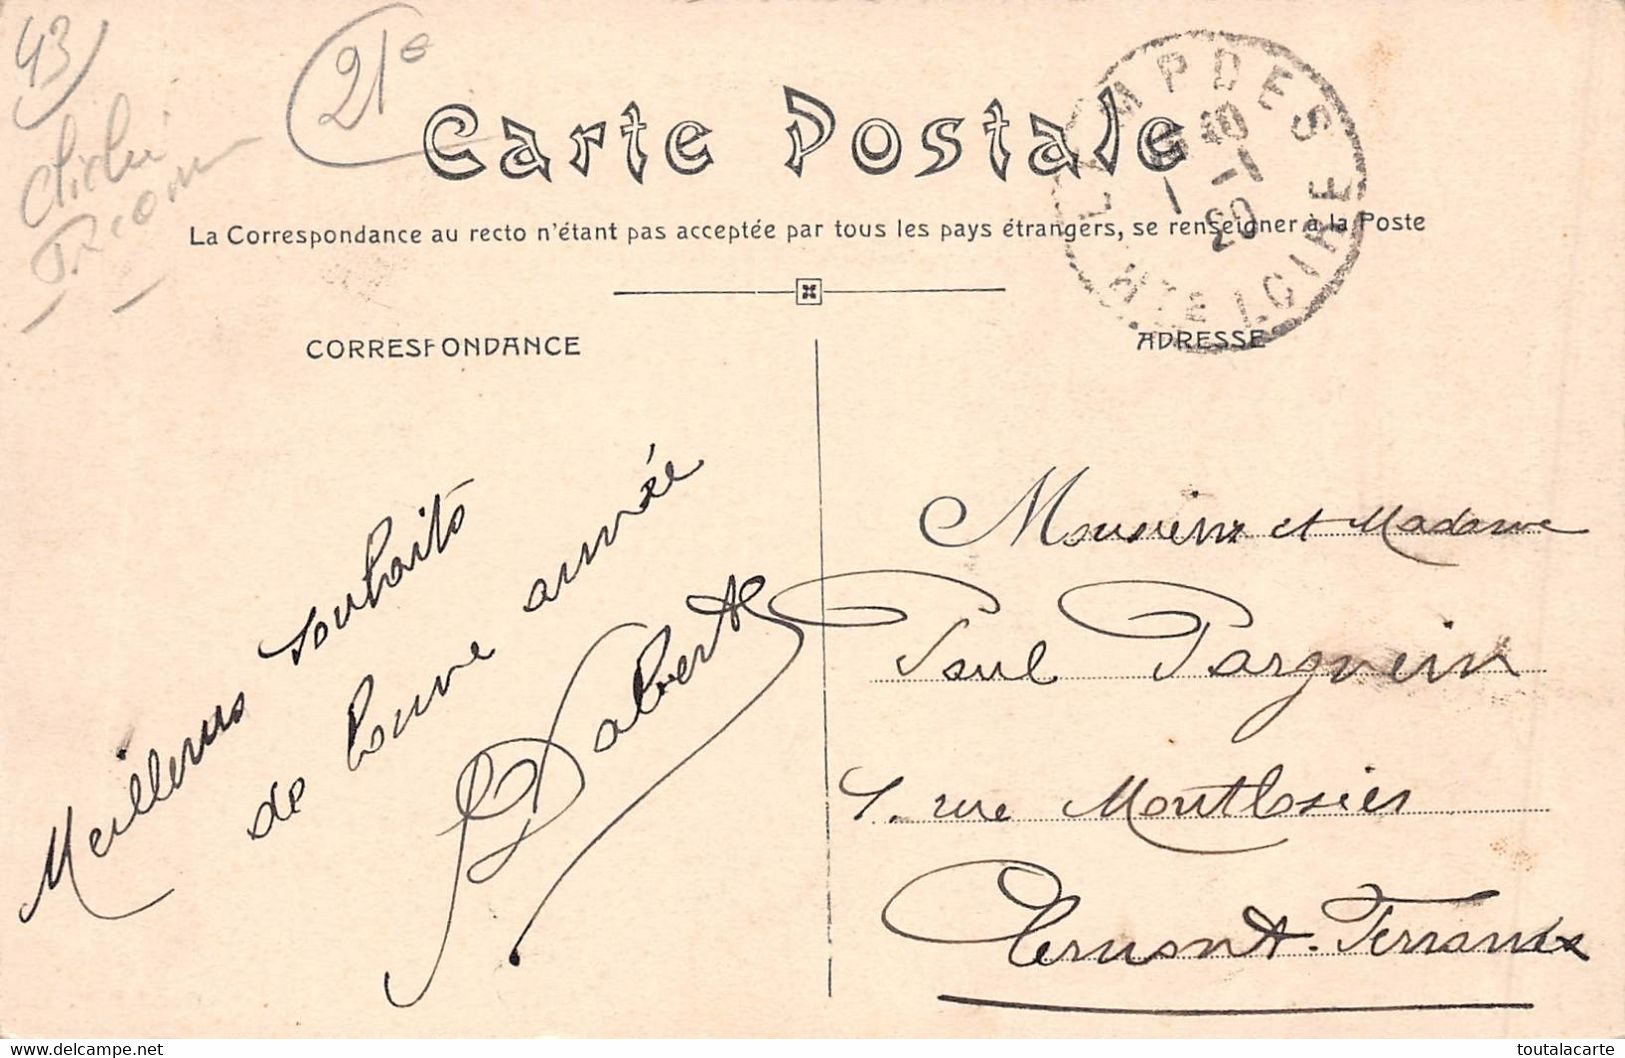 43
21e
Cliché
Carte Postale
LEMPDES
10
1 -1
20
HTE LOIRE
La Correspondance au recto n'étant pas acceptée par tous les pays étrangers, se renseigner à la Poste
CORRESPONDANCE
ADRESSE
Meilleurs souhaits
de bonne année
Monsieur et Madame
Paul Parguein
rue Montlosier
Clermont-Ferrand
delcampe.net
toutalacarte